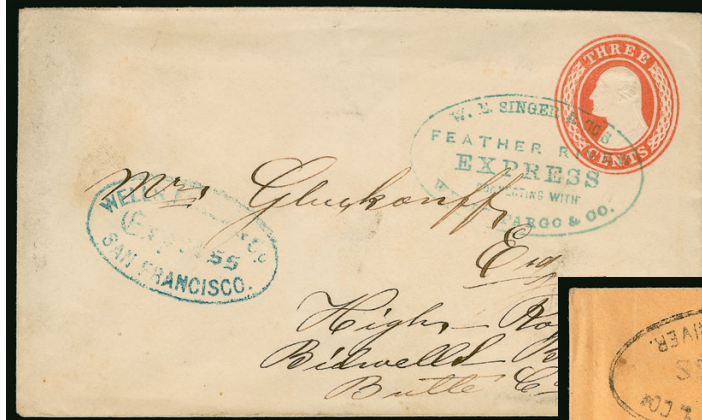 THREE
CENTS
W. E. SINGER & CO'S
FEATHER RIVER
EXPRESS
CONNECTING WITH
WELLS FARGO & CO.
WELLS, FARGO & CO.
EXPRESS
SAN FRANCISCO.
Mrs Gluckauff,
Esq
High
Bidwells
Butte Co
RIVER.
& CO'S